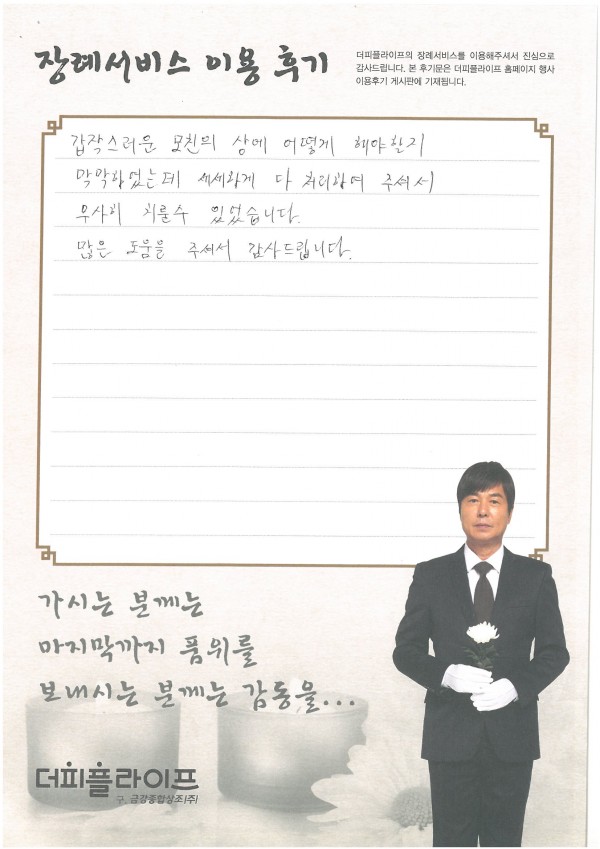 장례서비스 이용 후기
더피플라이프의 장례서비스를 이용해주셔서 진심으로
감사드립니다. 본 후기문은 더피플라이프 홈페이지 행사
이용후기 게시판에 기재됩니다.
갑작스러운 모친의 상에 어떻게 해야할지
막막하였는데 세세하게 다 처리하여 주셔서
무사히 치룰수 있었습니다.
많은 도움을 주셔서 감사드립니다.
가시는 분께는
마지막까지 품위를
보내시는 분께는 감동을...
더피플라이프
구. 금강종합상조(주)